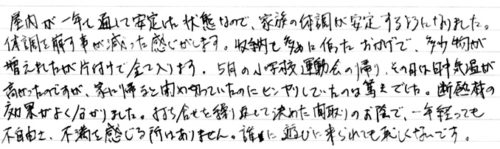 屋内が一年を通して安定した状態なので、家族の体調が安定するようになりました。
体調を崩す事が減った感じがします。収納も多めに作ったおかげで、多少物が
増えましたが片付けで全て入ります。5月の小学校運動会の帰り、その日は日中気温が
高かったのですが、家に帰ると閉め切っていたのにヒンヤリしていたのは驚きでした。断熱材の
効果がよく分かりました。打ち合せを繰り返して決めた間取りのお陰で、一年経っても
不自由を、不満を感じる所はありません。誰に遊びに来られても恥しくないです。